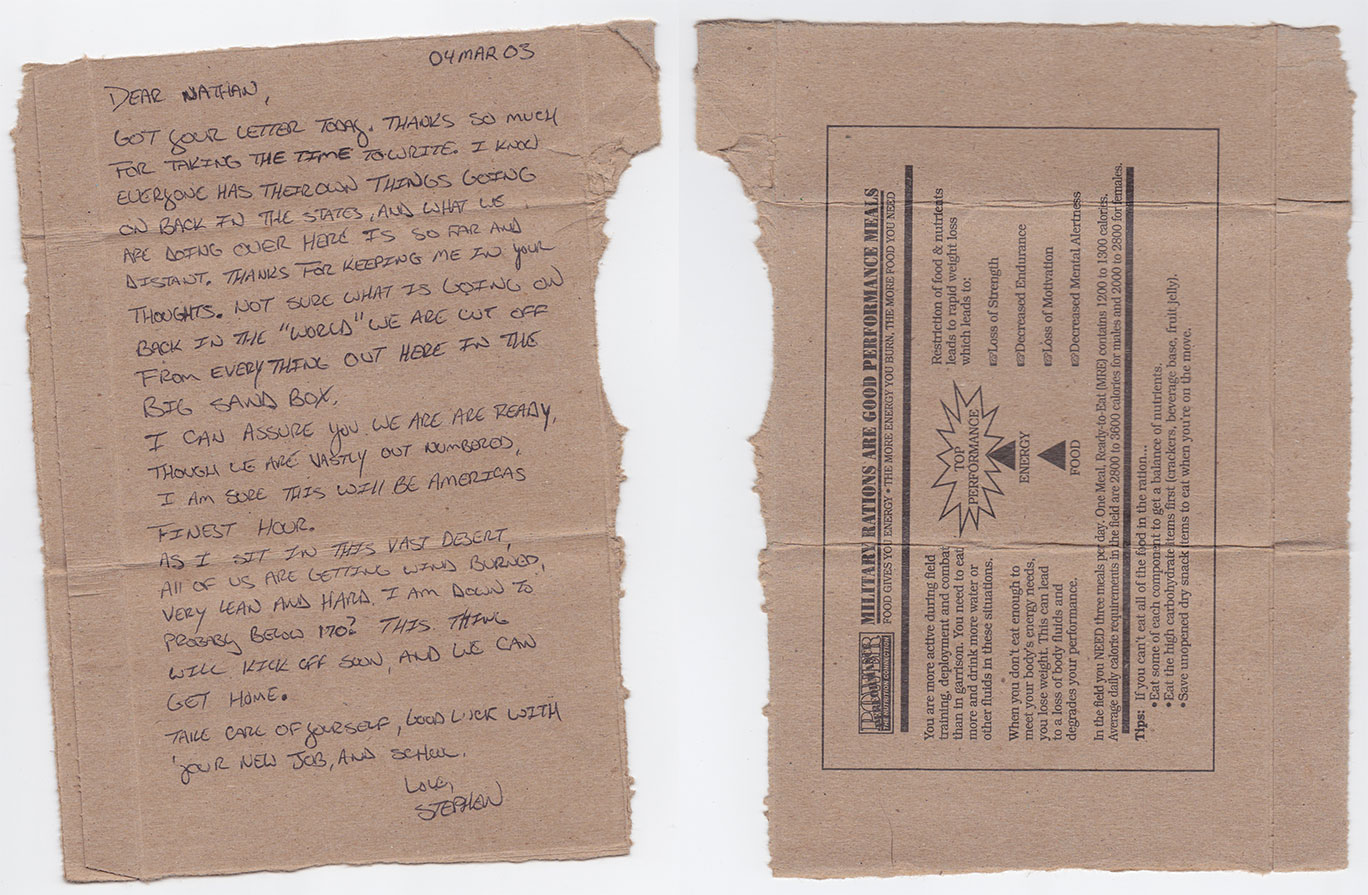 04 MAR 03
DEAR NATHAN,
GOT YOUR LETTER TODAY. THANKS SO MUCH
FOR TAKING THE TIME TO WRITE. I KNOW
EVERYONE HAS THEIR OWN THINGS GOING
ON BACK IN THE STATES, AND WHAT WE
ARE DOING OVER HERE IS SO FAR AND
DISTANT. THANKS FOR KEEPING ME IN YOUR
THOUGHTS. NOT SURE WHAT IS GOING ON
BACK IN THE "WORLD" WE ARE CUT OFF
FROM EVERYTHING OUT HERE IN THE
BIG SAND BOX.
I CAN ASSURE YOU WE ARE ARE READY,
THOUGH WE ARE VASTLY OUT NUMBERED,
I AM SURE THIS WILL BE AMERICAS
FINEST HOUR.
AS I SIT IN THIS VAST DESERT,
ALL OF US ARE GETTING WIND BURNED,
VERY LEAN AND HARD. I AM DOWN TO
PROBABLY BELOW 170? THIS THING
WILL KICK OFF SOON, AND WE CAN
GET HOME.
TAKE CARE OF YOURSELF, GOOD LUCK WITH
YOUR NEW JOB, AND SCHOOL.
LOVE,
STEPHEN
MILITARY RATIONS ARE GOOD PERFORMANCE MEALS
FOOD GIVES YOU ENERGY • THE MORE ENERGY YOU BURN, THE MORE FOOD YOU NEED
You are more active during field
training, deployment and combat
than in garrison. You need to eat
more and drink more water or
other fluids in these situations.
When you don't eat enough to
meet your body's energy needs,
you lose weight. This can lead
to a loss of body fluids and
degrades your performance.
TOP
PERFORMANCE
ENERGY
FOOD
Restriction of food & nutrients
leads to rapid weight loss
which leads to:
☞Loss of Strength
☞Decreased Endurance
☞Loss of Motivation
☞Decreased Mental Alertness
In the field you NEED three meals per day. One Meal, Ready-to-Eat (MRE) contains 1200 to 1300 calories.
Average daily calorie requirements in the field are 2800 to 3600 calories for males and 2000 to 2800 for females.
Tips: If you can't eat all of the food in the ration...
•Eat some of each component to get a balance of nutrients.
•Eat the high carbohydrate items first (crackers, beverage base, fruit, jelly).
•Save unopened dry snack items to eat when you're on the move.